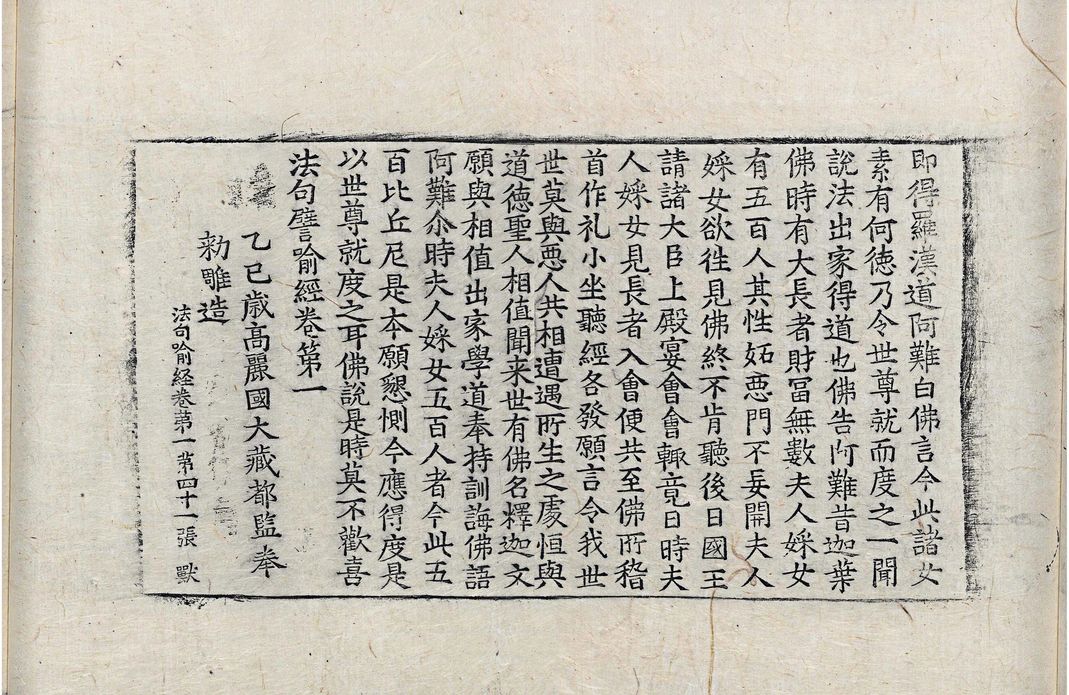 即得羅漢道阿難白佛言今此諸女
素有何徳乃令世尊就而度之一聞
說法出家得道也佛告阿難昔迦葉
佛時有大長者財冨無數夫人婇女
有五百人其性妬惡門不妄開夫人
婇女欲徃見佛終不肯聽後日國王
請諸大臣上殿宴會會輙竟日時夫
人婇女見長者入會便共至佛所稽
首作礼小坐聽經各發願言令我世
世莫與惡人共相遭遇所生之處恒與
道徳聖人相值聞来世有佛名釋迦文
願與相值出家學道奉持訓誨佛語
阿難尒時夫人婇女五百人者今此五
百比丘尼是本願懇惻今應得度是
以世尊就度之耳佛說是時莫不歡喜
法句譬喻經卷第一
乙巳歲高麗國大藏都監奉
勑雕造
法句喻経卷第一 第四十一張 獸